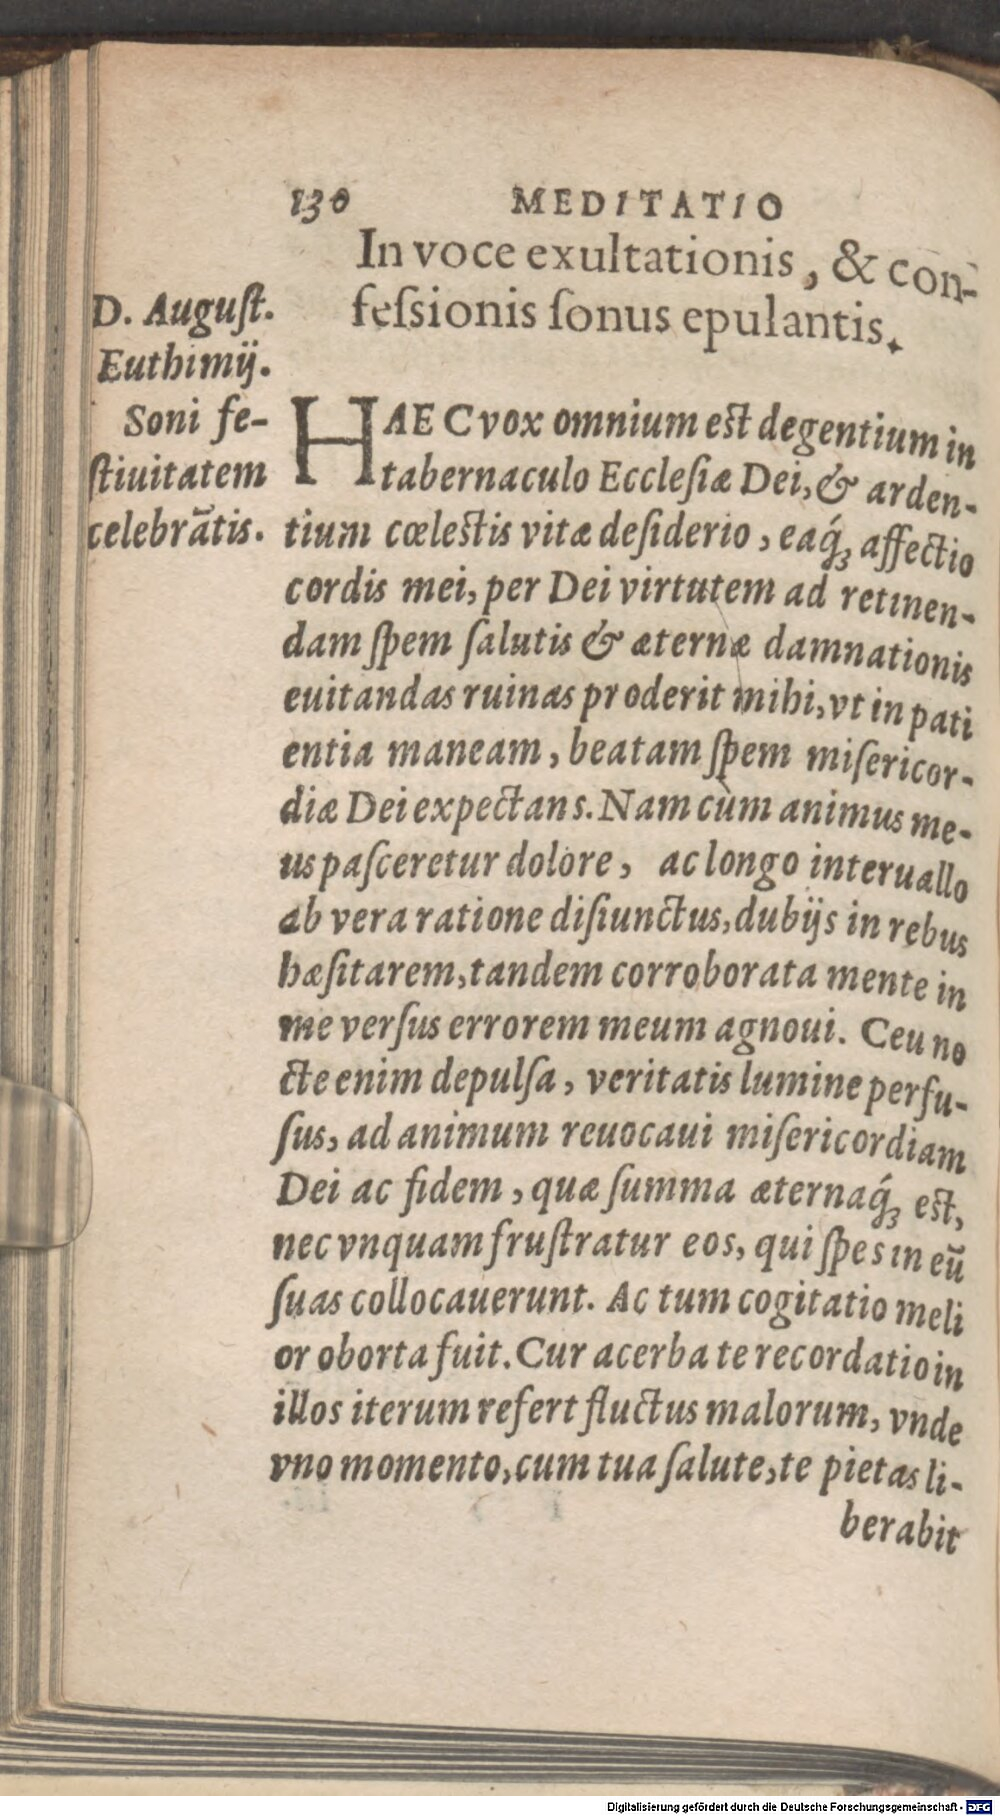 130 MEDITATIO
In voce exultationis, & con-
feſsionis ſonus epulantis.
D. Auguſt.
Euthimij.
Soni fe-
ſtiuitatem
celebrātis.
HAEC vox omnium est degentium in
tabernaculo Eccleſiæ Dei, & arden-
tium cœlestis vitæ deſiderio, eaq́ꝫ affectio
cordis mei, per Dei virtutem ad retinen-
dam ſpem ſalutis & æternæ damnationis
euitandas ruinas proderit mihi, vt in pati
entia maneam, beatam ſpem miſericor-
diæ Dei expectans. Nam cùm animus me-
us paſceretur dolore, ac longo interuallo
ab vera ratione diſiunctus, dubijs in rebus
hæſitarem, tandem corroborata mente in
me verſus errorem meum agnoui. Ceu no
cte enim depulſa, veritatis lumine perfu-
ſus, ad animum reuocaui miſericordiam
Dei ac fidem, quæ ſumma æternaq́ꝫ est,
nec vnquam fruſtratur eos, qui ſpes in eū
ſuas collocauerunt. Ac tum cogitatio meli
or oborta fuit. Cur acerba te recordatio in
illos iterum refert fluctus malorum, vnde
vno momento, cum tua ſalute, te pietas li-
berabit
Digitalisierung gefördert durch die Deutsche Forschungsgemeinschaft - DFG